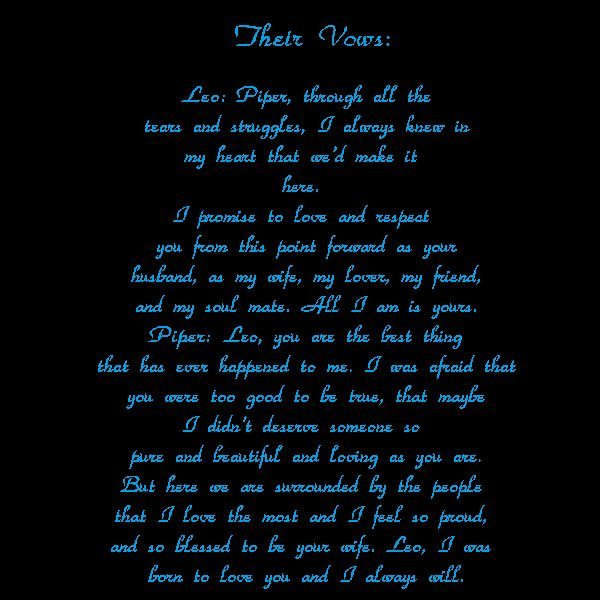 Their Vows:
Leo: Piper, through all the
tears and struggles, I always knew in
my heart that we'd make it
here.
I promise to love and respect
you from this point forward as your
husband, as my wife, my lover, my friend,
and my soul mate. All I am is yours.
Piper: Leo, you are the best thing
that has ever happened to me. I was afraid that
you were too good to be true, that maybe
I didn't deserve someone so
pure and beautiful and loving as you are.
But here we are surrounded by the people
that I love the most and I feel so proud,
and so blessed to be your wife. Leo, I was
born to love you and I always will.